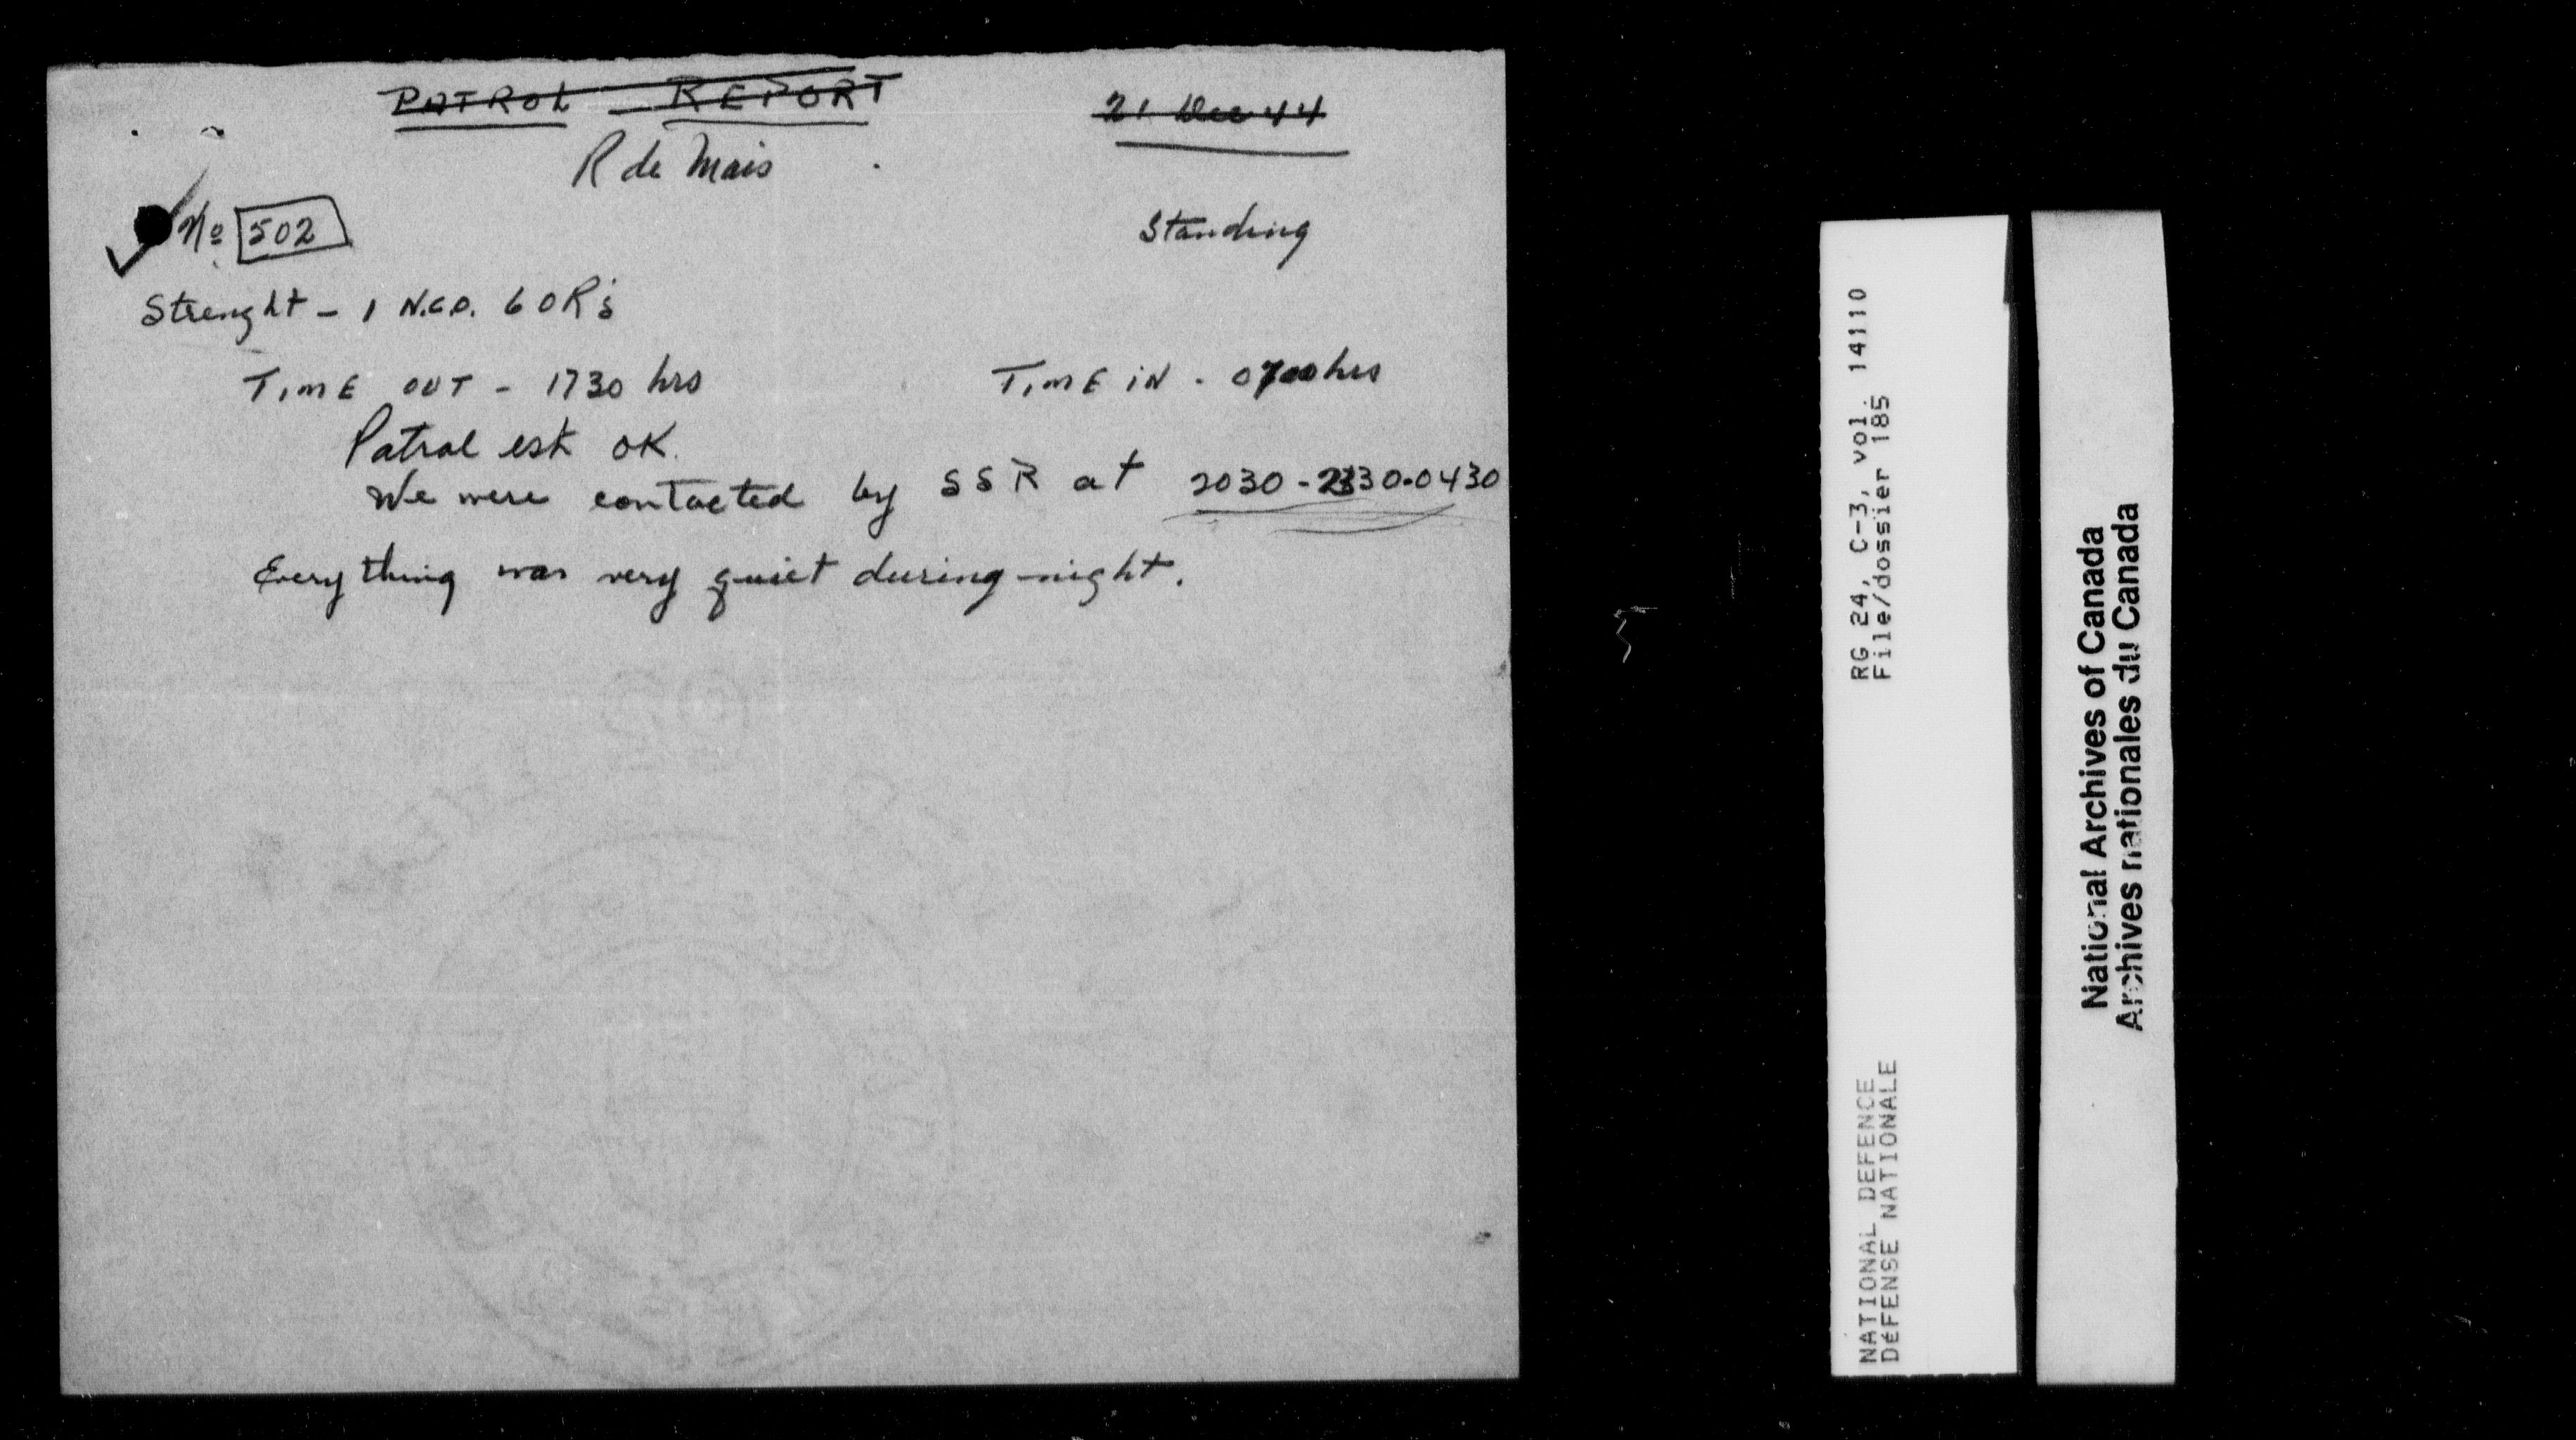 PATROL - REPORT
21 Dec 44
R de Mais
No 502
Standing
Strenght - 1 N.C.O. 6 OR's
TIME OUT - 1730 hrs
TIME IN - 0700 hrs
Patrol est OK.
We were contacted by SSR at 2030 - 2330 - 0430
Every thing was very quiet during night.
RG 24, C-3, vol. 14110
File/dossier 185
NATIONAL DEFENCE
DéFENSE NATIONALE
National Archives of Canada
Archives nationales du Canada